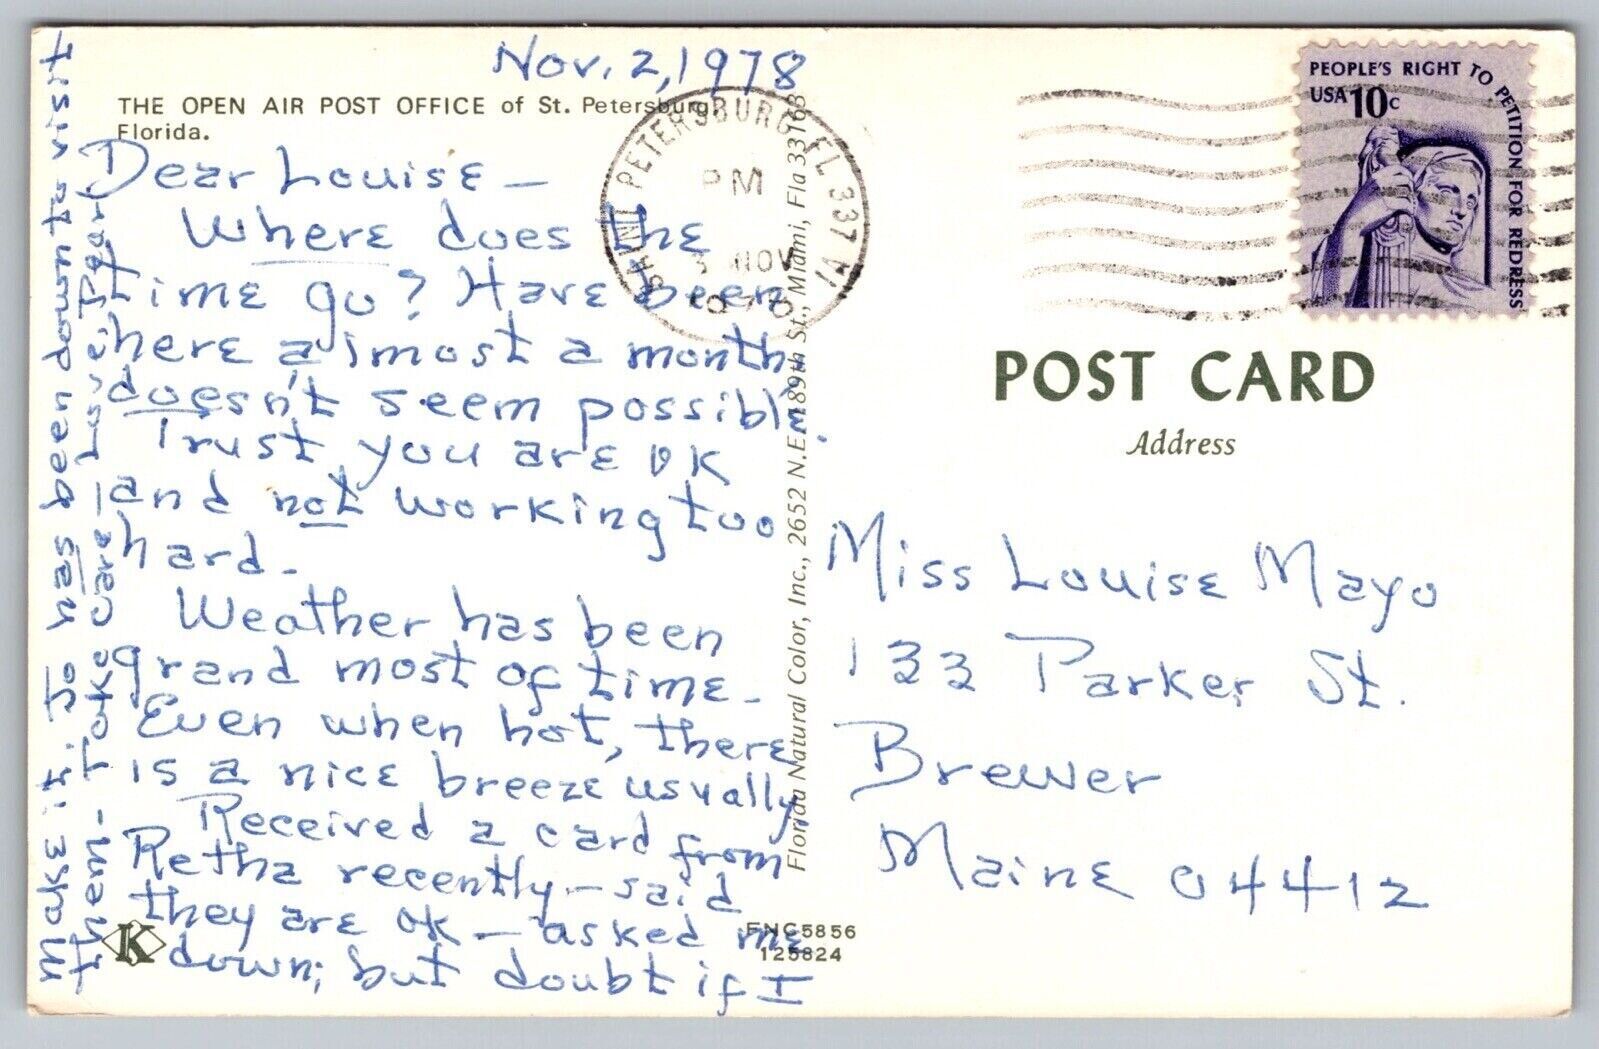 Nov. 2, 1978
THE OPEN AIR POST OFFICE of St. Petersburg,
Florida.
Dear Louise —
Where does the
time go? Have been
here almost a month,
doesn't seem possible.
Trust you are OK
and not working too
hard.
Weather has been
grand most of time.
Even when hot, there
is a nice breeze usually.
Received a card from
Retha recently — said
they are ok — asked me
down; but doubt if I
make it. Jo has been down to visit
them. Take care — Love, Pearl
K
FNC5856
125824
Florida Natural Color, Inc., 2652 N.E. 189th St., Miami, Fla 33163
SAINT PETERSBURG, FL 337
PM
3 NOV
PEOPLE'S RIGHT TO PETITION FOR REDRESS
USA 10c
POST CARD
Address
Miss Louise Mayo
133 Parker St.
Brewer
Maine 04412